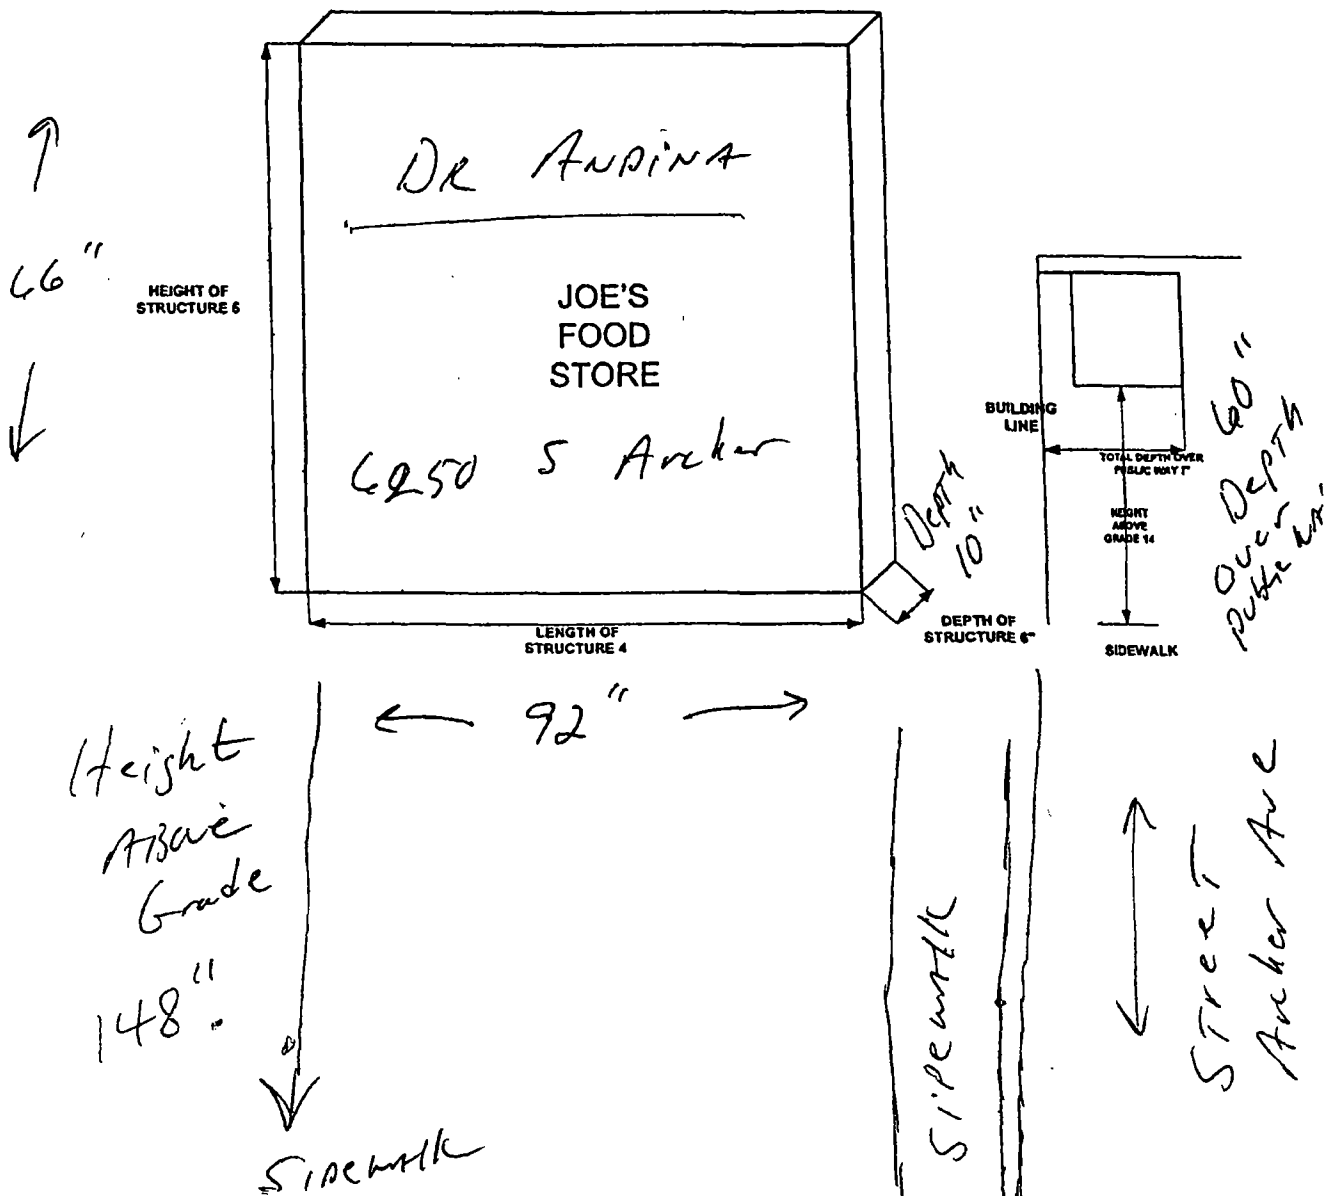 DR ANDINA
66"
HEIGHT OF
STRUCTURE 5
JOE'S
FOOD
STORE
6250 S Archer
Depth
10"
LENGTH OF
STRUCTURE 4
DEPTH OF
STRUCTURE 6"
BUILDING
LINE
TOTAL DEPTH OVER
PUBLIC WAY 7"
HEIGHT
ABOVE
GRADE 14
SIDEWALK
60"
Depth
Over
public
92"
Height
Above
Grade
148"
Sidewalk
Sidewalk
Street
Archer Ave